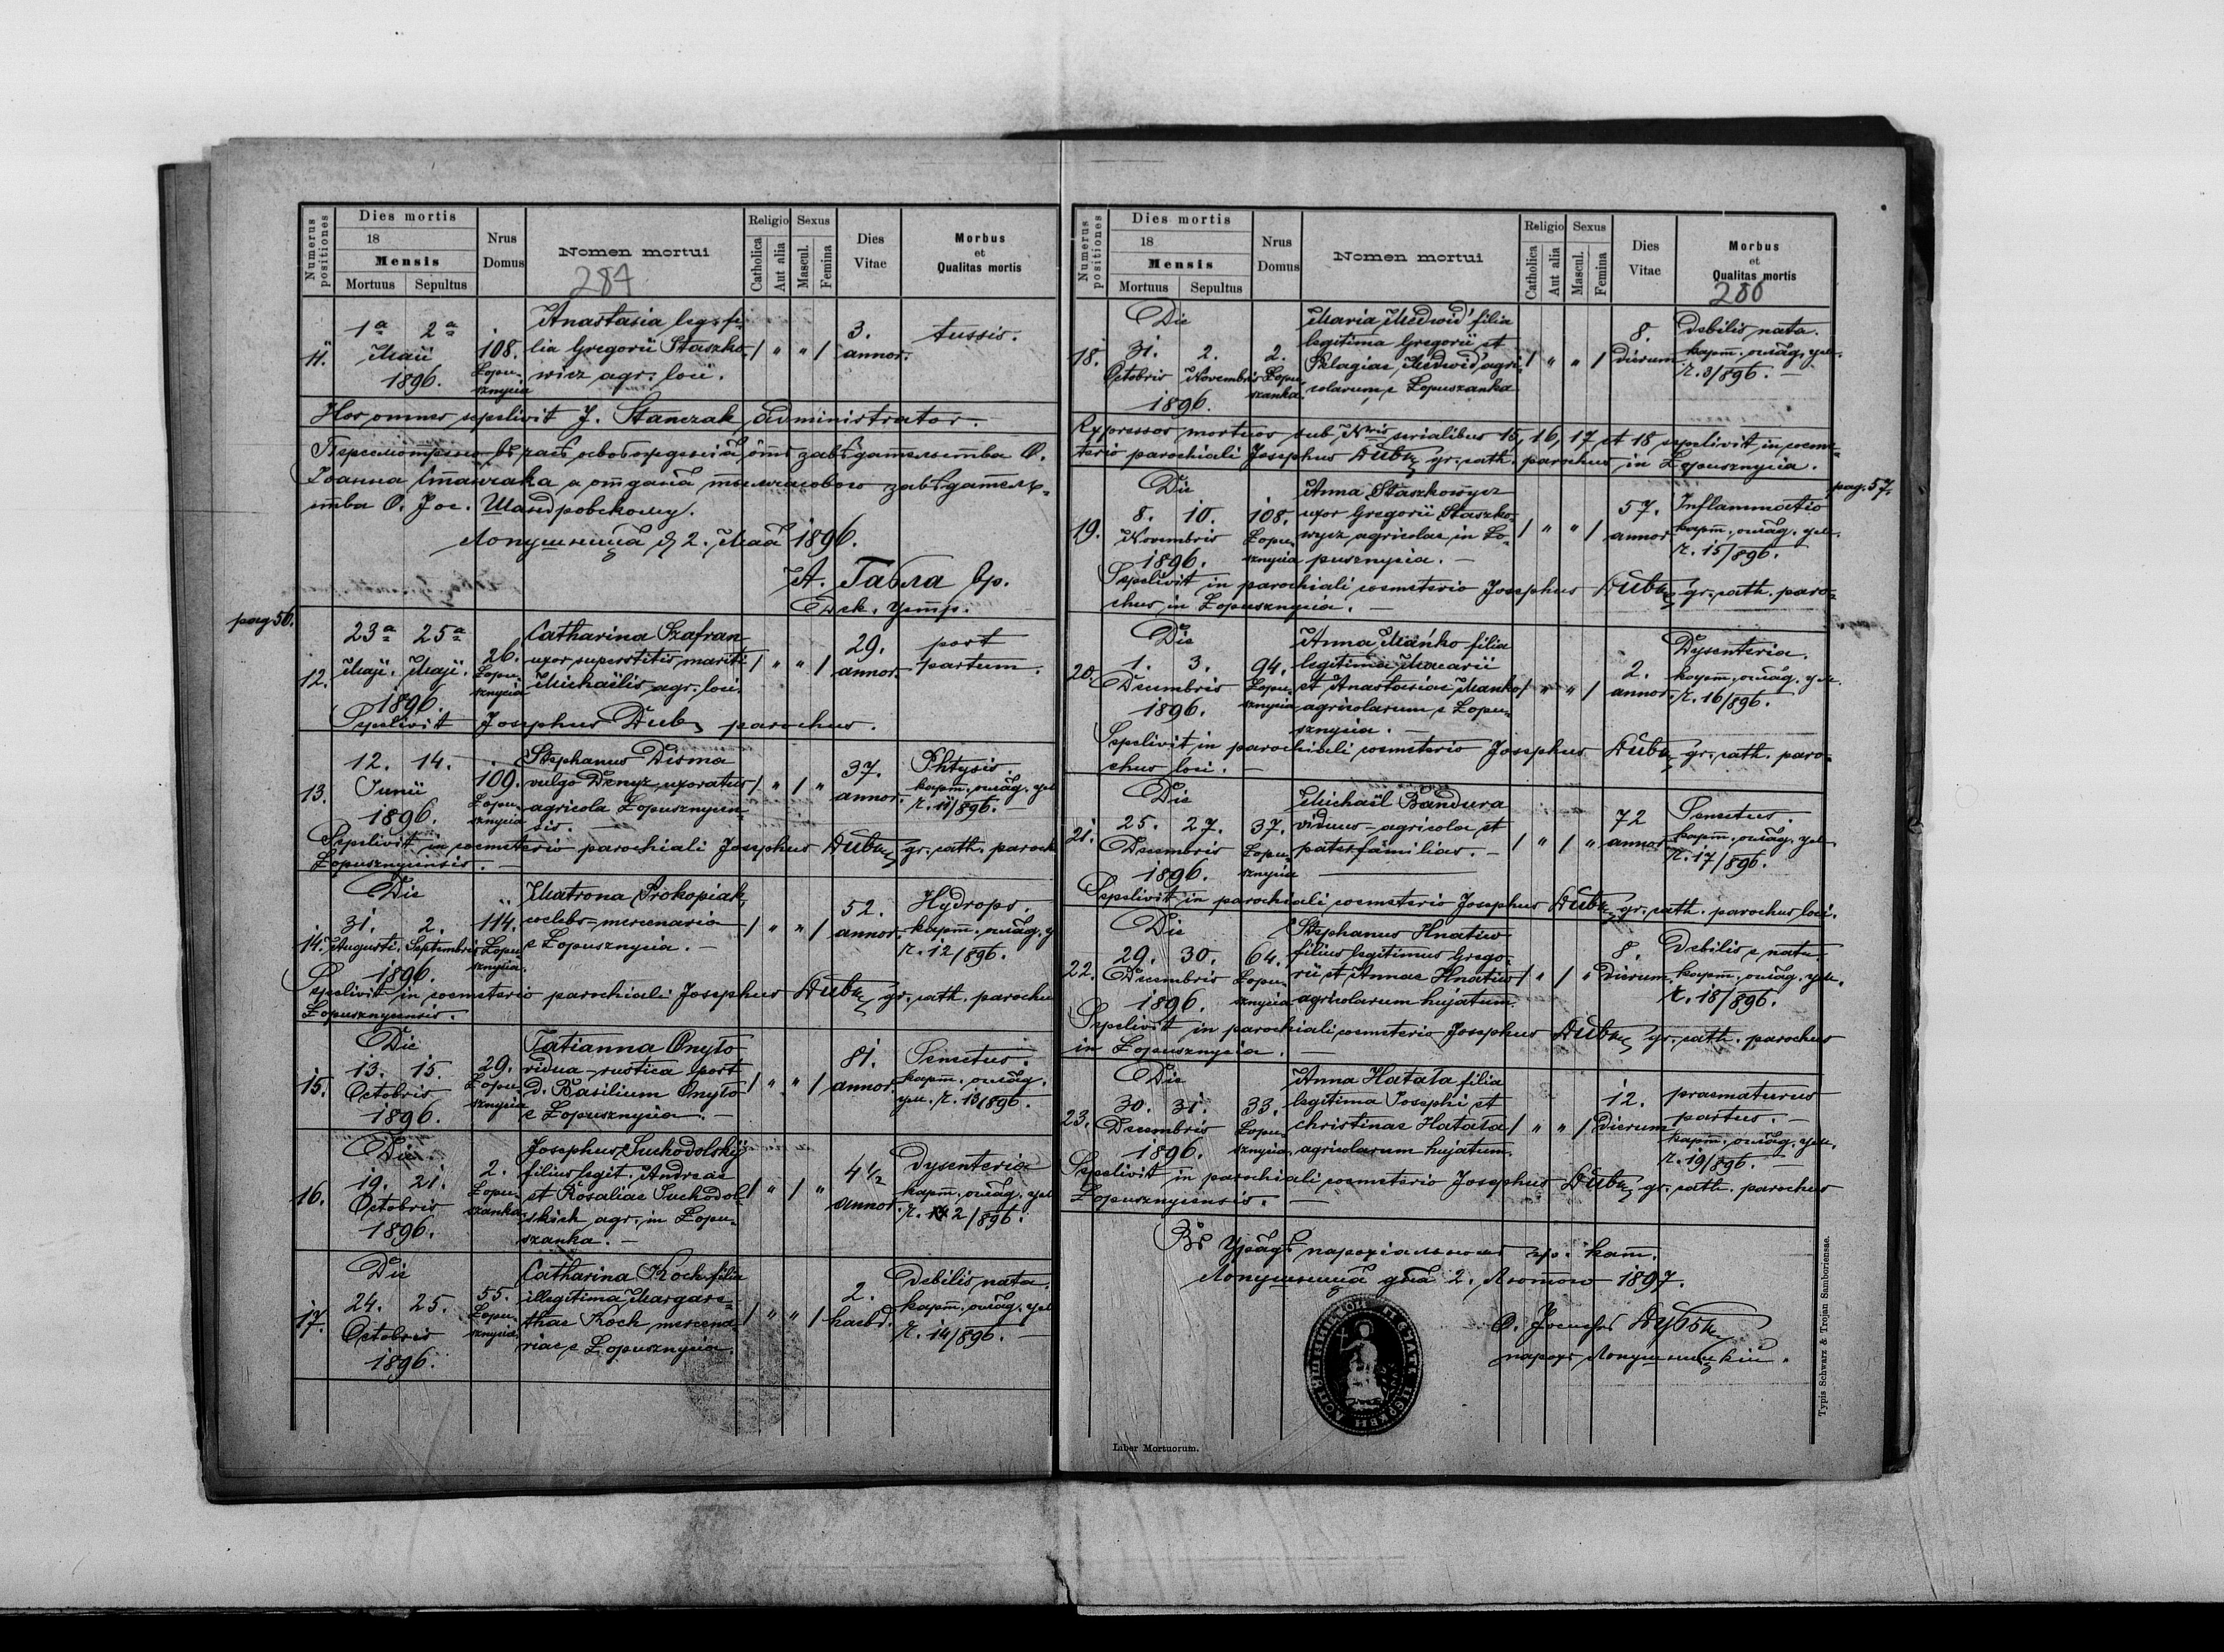 Numerus positiones
Dies mortis
18
Mensis
Mortuus Sepultus
Nrus Domus
Nomen mortui
284
Religio Sexus
Catholica Aut alia Mascul. Femina
Dies Vitae
Morbus
et
Qualitas mortis
11.
1a 2a
Maii
1896.
108.
Łopu-
sznycia
Anastasia leg. fi-
lia Gregorii Staszko-
wicz agr. loci.
/ " " /
3.
annor.
tussis.
Hos omnes sepelivit J. Stańczak, administrator.
Іоанна Станчака а отдана тымчасового завѣдатель-
ства О. Іос. Шандровскому.
Лопушниця д. 2. Мая 1896.
А. Габла вр.
pag 56.
12.
23a 25a
Maji. Maji.
1896.
26.
Łopu-
sznycia
Catharina Szafran
uxor superstitis mariti
Michaëlis agr. loci.
/ " " /
29.
annor.
post
partum.
Sepelivit Josephus Dub parochus.
13.
12. 14.
Junii
1896.
109.
Łopu-
sznycia
Stephanus Disma
vulgo Denyz, uxoratus
agricola Łopusznycen-
sis.
/ " / "
37.
annor.
Phtysis
Sepelivit in coemeterio parochiali Josephus gr. cath. paroch
Łopusznycensis.
14.
Die
31. 2.
Augusti. Septembris
1896.
114.
Łopu-
sznycia.
Matrona Prokopiak,
coelebs - mercenaria
e Łopusznycia.
/ " " /
52.
annor.
Hydrops.
ч. 12/896.
Sepelivit in coemeterio parochiali Josephus gr. cath. parochus
Łopusznycensis.
15.
Die
13. 15.
Octobris
1896.
29.
Łopu-
sznycia
Tatianna Onyło
vidua rustica post
d. Basilium Onyło
e Łopusznycia.
/ " " /
81.
annor.
Senectus.
ч. 13/896.
16.
Die
19. 21.
Octobris
1896.
2.
Łopu-
szanka.
Josephus Suchodolskij
filius legit. Andreae
et Rosaliae Suchodol-
skich agr. in Łopu-
szanka.
/ " / "
4 1/2
annor.
Dysenteria
2/896.
17.
Die
24. 25.
Octobris
1896.
55.
Łopu-
sznycia.
Catharina Koch filia
illegitima Margare-
thae Koch mercena-
riae e Łopusznycia.
/ " " /
2.
hebd.
Debilis nata.
ч. 14/896.
Numerus positiones
Dies mortis
18
Mensis
Mortuus Sepultus
Nrus Domus
Nomen mortui
Religio Sexus
Catholica Aut alia Mascul. Femina
Dies Vitae
Morbus
et
Qualitas mortis
280
18.
Die
31. 2.
Octobris Novembris
1896.
2.
Łopu-
szanka.
Maria Medwid' filia
legitima Gregorii et
Pelagiae Medwid' agri-
colarum e Łopuszanka
/ " " /
8.
dierum
Debilis nata.
Expressos mortuos sub Nris serialibus 15, 16, 17 et 18 sepelivit in coeme-
terio parochiali Josephus gr. cath. parochus in Łopusznycia.
pag. 57.
19.
Die
8. 10.
Novembris
1896.
108.
Łopu-
sznycia
Anna Staszkowycz
uxor Gregorii Staszko-
wycz agricolae in Ło-
pusznycia.
/ " " /
57.
annor.
Inflammatio
ч. 15/896.
Sepelivit in parochiali coemeterio Josephus gr. cath. paro-
chus in Łopusznycia.
20.
Die
1. 3.
Decembris
1896.
94.
Łopu-
sznycia
Anna Mańko filia
legitima Macarii
et Anastasiae Mańko
agricolarum e Łopu-
sznycia.
/ " " /
2.
annor.
Dysenteria.
ч. 16/896.
Sepelivit in parochiali coemeterio Josephus gr. cath. paro-
chus loci.
21.
Die
25. 27.
Decembris
1896.
37.
Łopu-
sznycia
Michaël Bandura
viduus - agricola et
paterfamilias.
/ " / "
72
annor.
Senectus.
ч. 17/896.
Sepelivit in parochiali coemeterio Josephus gr. cath. parochus loci.
22.
Die
29. 30.
Decembris
1896.
64.
Łopu-
sznycia
Stephanus Hnatiw
filius legitimus Grego-
rii et Annae Hnatiw
agricolarum hujatum.
/ " / "
8.
dierum.
Debilis e natu
ч. 18/896.
Sepelivit in parochiali coemeterio Josephus gr. cath. parochus
in Łopusznycia.
23.
Die
30. 31.
Decembris
1896.
33.
Łopu-
sznycia
Anna Hatala filia
legitima Josephi et
Christinae Hatala
agricolarum hujatum.
/ " " /
12.
dierum
praematurus
partus.
ч. 19/896.
Sepelivit in parochiali coemeterio Josephus gr. cath. parochus
Łopusznycensis.
Лопушниця дня 2. Лютого 1897.
Liber Mortuorum.
Typis Schwarz & Trojan Samboriensae.